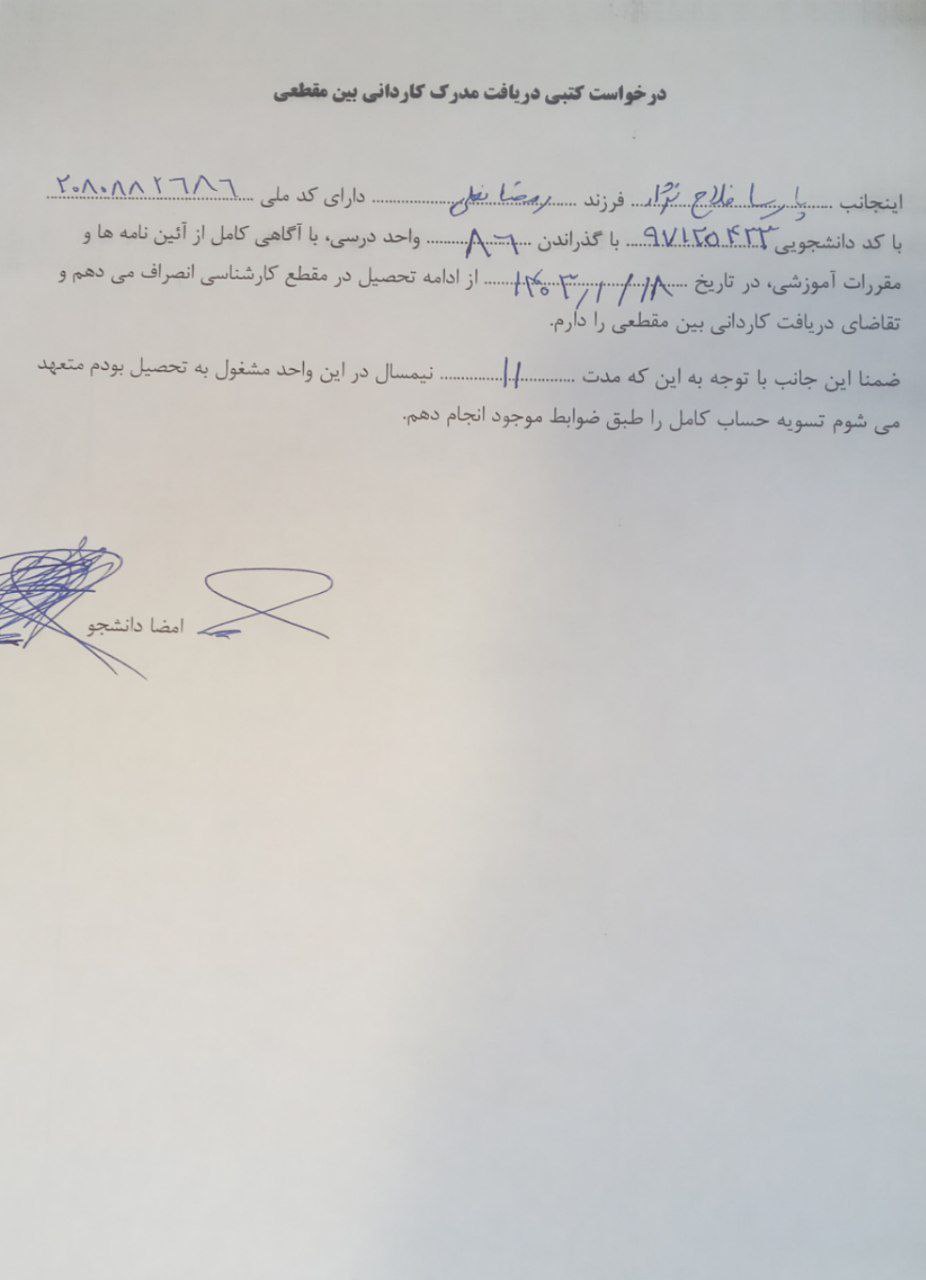 درخواست کتبی دریافت مدرک کاردانی بین مقطعی
اینجانب پارسا فلاح نژاد فرزند رمضانعلی دارای کد ملی ۲۰۸۰۸۸۲۶۸۶
با کد دانشجویی ۹۷۱۲۵۴۲۳ با گذراندن ۸۶ واحد درسی، با آگاهی کامل از آئین نامه ها و
مقررات آموزشی، در تاریخ ۱۴۰۳/۱/۱۸ از ادامه تحصیل در مقطع کارشناسی انصراف می دهم و
تقاضای دریافت کاردانی بین مقطعی را دارم.
ضمنا این جانب با توجه به این که مدت ۱۱ نیمسال در این واحد مشغول به تحصیل بودم متعهد
می شوم تسویه حساب کامل را طبق ضوابط موجود انجام دهم.
امضا دانشجو